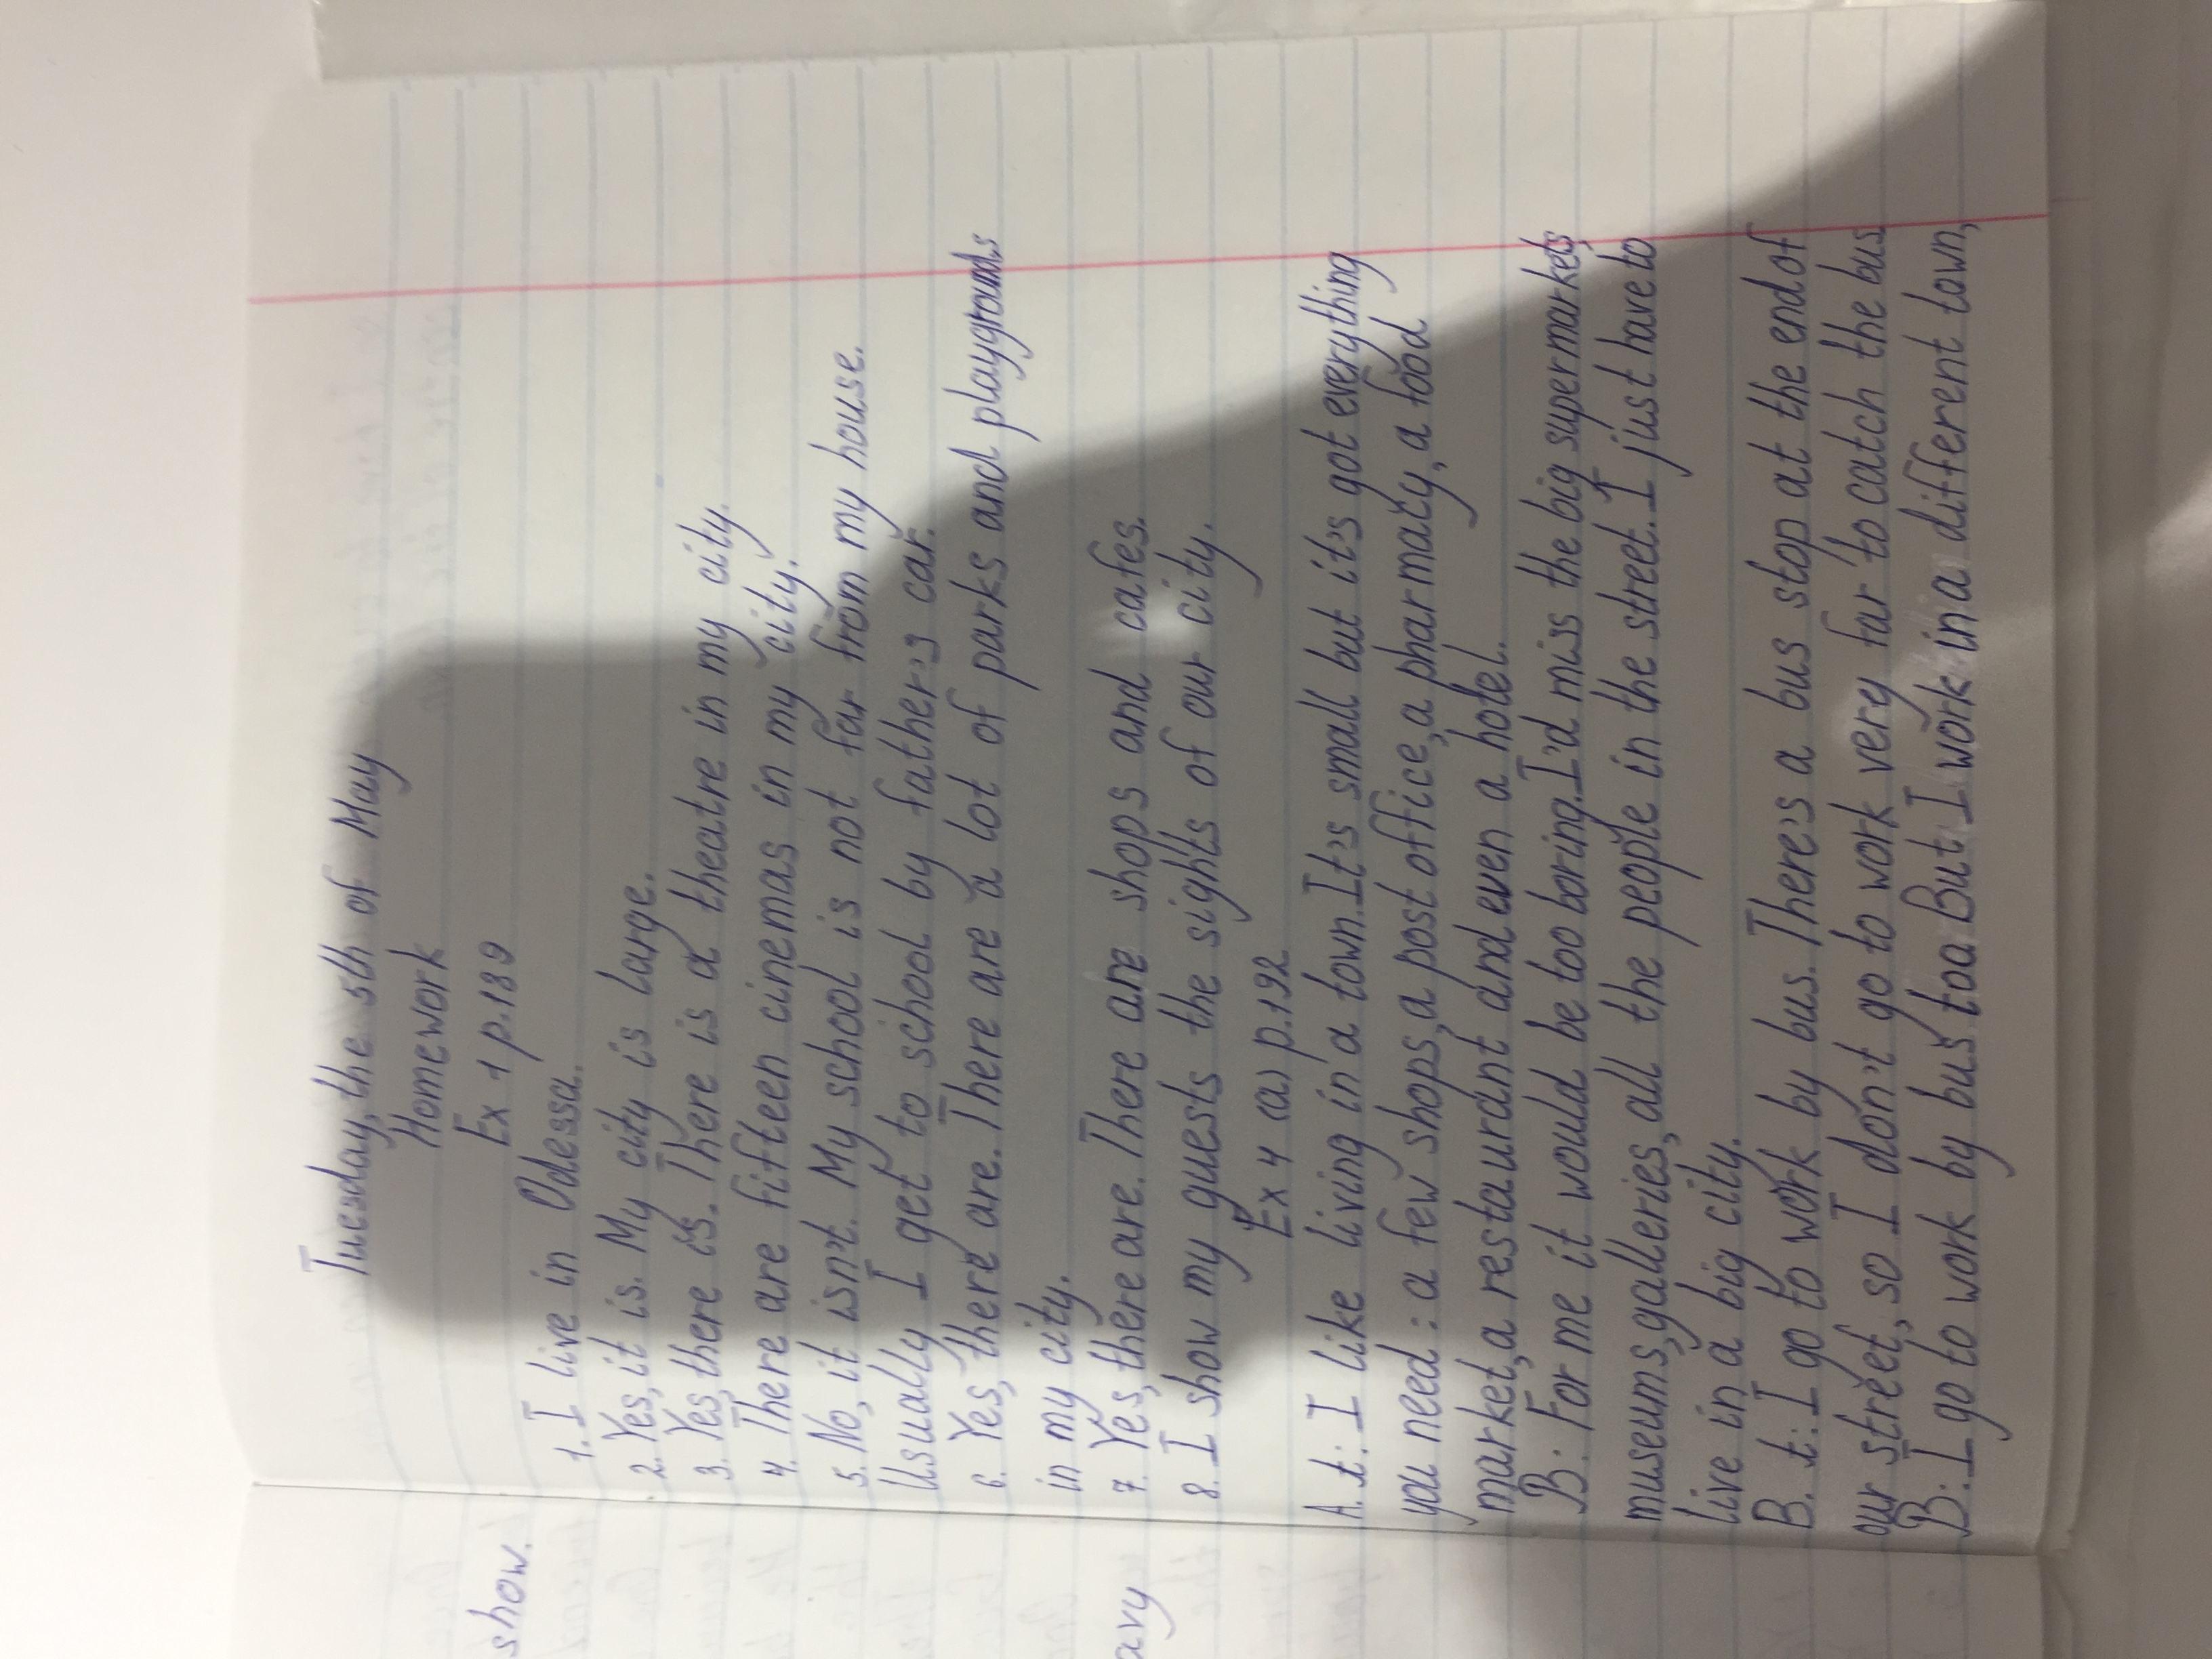 Tuesday, the 5th of May
Homework
Ex 1 p.189
1. I live in Odessa.
2. Yes, it is. My city is large.
3. Yes, there is. There is a theatre in my city.
4. There are fifteen cinemas in my city.
5. No, it isn't. My school is not far from my house.
Usually I get to school by father's car.
6. Yes, there are. There are a lot of parks and playgrounds
in my city.
7. Yes, there are. There are shops and cafes.
8. I show my guests the sights of our city.
Ex 4 (a) p.192
A. t: I like living in a town. It's small but it's got everything
you need: a few shops, a post office, a pharmacy, a food
market, a restaurant and even a hotel.
B: For me it would be too boring. I'd miss the big supermarkets,
museums, galleries, all the people in the street. I just have to
live in a big city.
B. t: I go to work by bus. There's a bus stop at the end of
our street, so I don't go to work very far to catch the bus.
B: I go to work by bus too. But I work in a different town,
show.
avy